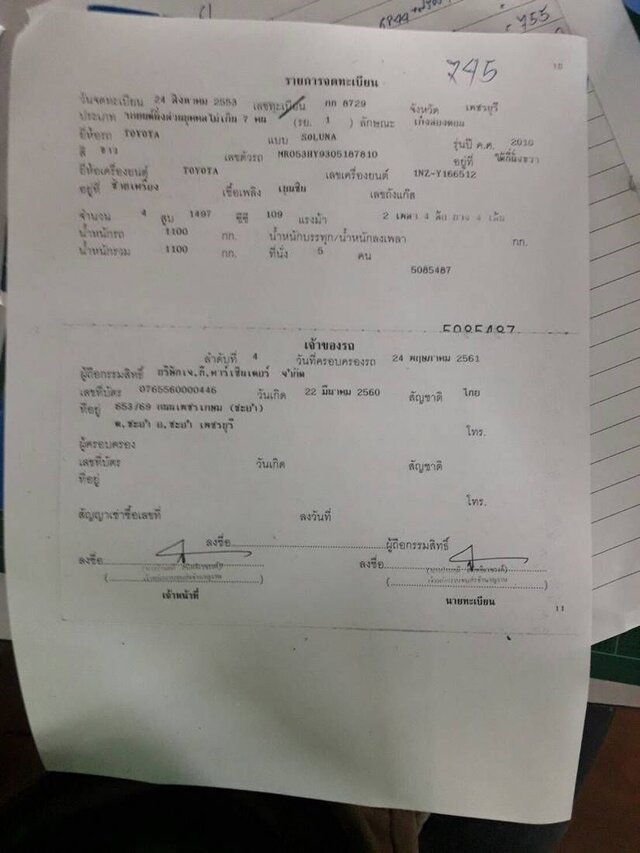 755
745
10
รายการจดทะเบียน
วันจดทะเบียน 24 สิงหาคม 2553 เลขทะเบียน กก 8729 จังหวัด เพชรบุรี
ประเภท รถยนต์นั่งส่วนบุคคลไม่เกิน 7 คน (รย. 1 ) ลักษณะ เก๋งสองตอน
ยี่ห้อรถ TOYOTA แบบ SOLUNA รุ่นปี ค.ศ. 2010
สี ขาว เลขตัวรถ MR053HY9305187810 อยู่ที่ ใต้ที่นั่งขวา
ยี่ห้อเครื่องยนต์ TOYOTA เลขเครื่องยนต์ 1NZ-Y166512
อยู่ที่ ซ้ายเครื่อง เชื้อเพลิง เบนซิน เลขถังแก๊ส
จำนวน 4 สูบ 1497 ซีซี 109 แรงม้า 2 เพลา 4 ล้อ ยาง 4 เส้น
น้ำหนักรถ 1100 กก. น้ำหนักบรรทุก/น้ำหนักลงเพลา กก.
น้ำหนักรวม 1100 กก. ที่นั่ง 5 คน
5085487
5085487
เจ้าของรถ
ลำดับที่ 4 วันที่ครอบครองรถ 24 พฤษภาคม 2561
ผู้ถือกรรมสิทธิ์ บริษัทเจ.ที.คาร์เซ็นเตอร์ จำกัด
เลขที่บัตร 0765560000446 วันเกิด 22 มีนาคม 2560 สัญชาติ ไทย
ที่อยู่ 653/69 ถนนเพชรเกษม (ชะอำ)
ต.ชะอำ อ.ชะอำ เพชรบุรี โทร.
ผู้ครอบครอง
เลขที่บัตร วันเกิด สัญชาติ
ที่อยู่
โทร.
สัญญาเช่าซื้อเลขที่ ลงวันที่
ลงชื่อ ผู้ถือกรรมสิทธิ์
ลงชื่อ ลงชื่อ
เจ้าหน้าที่ นายทะเบียน
11